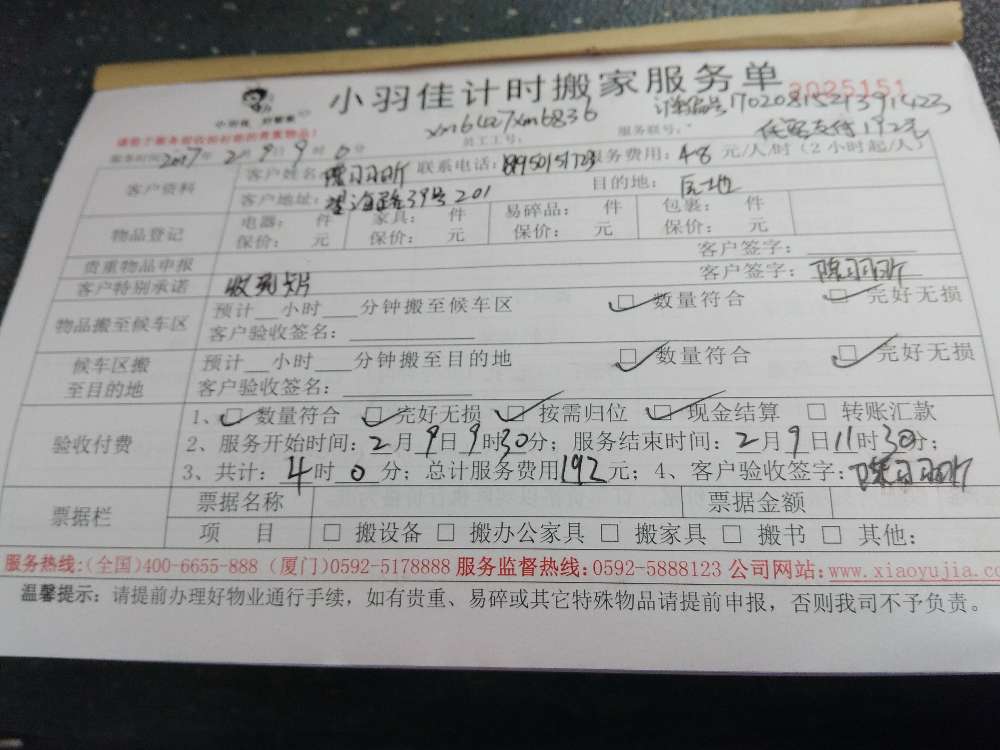 小羽佳计时搬家服务单
2025151
小羽佳 好管家
xm6427xm6836
订单编号17020815213914223
请勿于服务验收前扣您的贵重物品!
员工工号:
服务联号:
在线支付192元
服务时间2017年2月9日9时0分
客户资料
客户姓名:陈羽昕
联系电话:
服务费用:48元/人/时(2小时起/人)
客户地址:望海路39号201
目的地:
物品登记
电器: 件 家具: 件 易碎品: 件 包裹: 件
保价: 元 保价: 元 保价: 元 保价: 元
贵重物品申报 客户签字:
客户特别承诺 收到卡片 客户签字:陈羽昕
物品搬至候车区
预计__小时__分钟搬至候车区 □数量符合 □完好无损
客户验收签名:
候车区搬至目的地
预计__小时__分钟搬至目的地 □数量符合 □完好无损
客户验收签名:
验收付费
1、□数量符合 □完好无损 □按需归位 □现金结算 □转账汇款
2、服务开始时间:2月9日9时30分;服务结束时间:2月9日11时30分;
3、共计:4时0分;总计服务费用192元;4、客户验收签字:陈羽昕
票据栏
票据名称 票据金额
项 目 □搬设备 □搬办公家具 □搬家具 □搬书 □其他:
服务热线:(全国)400-6655-888 (厦门)0592-5178888 服务监督热线:0592-5888123 公司网站:www.xiaoyujia.co
温馨提示:请提前办理好物业通行手续,如有贵重、易碎或其它特殊物品请提前申报,否则我司不予负责。